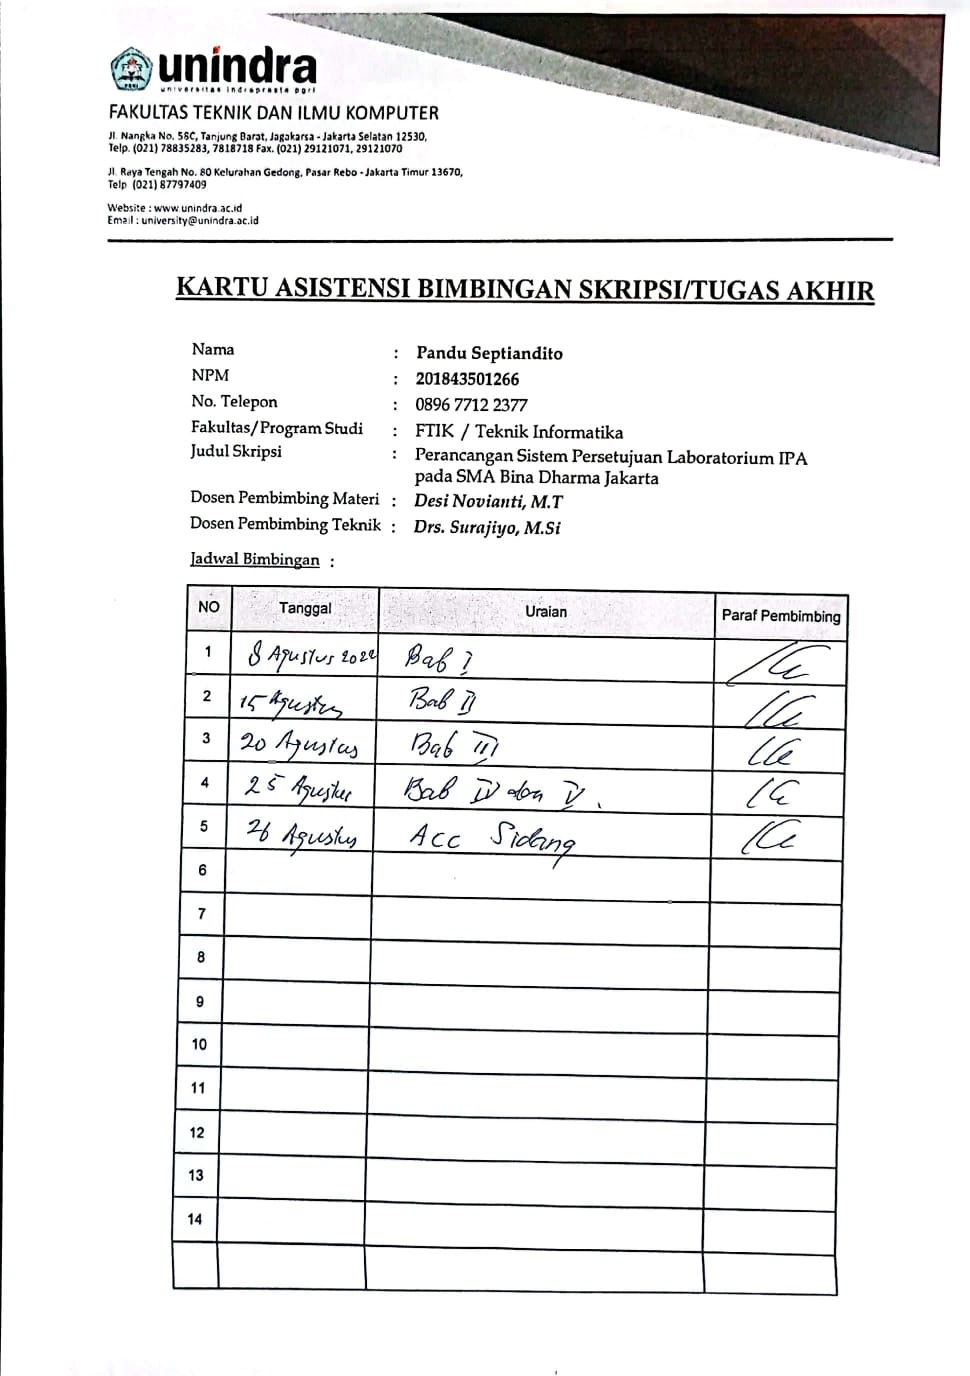 unindra
universitas indraprasta pgri
FAKULTAS TEKNIK DAN ILMU KOMPUTER
Jl. Nangka No. 58C, Tanjung Barat, Jagakarsa - Jakarta Selatan 12530,
Telp. (021) 78835283, 7818718 Fax. (021) 29121071, 29121070
Jl. Raya Tengah No. 80 Kelurahan Gedong, Pasar Rebo - Jakarta Timur 13670,
Telp (021) 87797409
Website : www.unindra.ac.id
Email : university@unindra.ac.id
KARTU ASISTENSI BIMBINGAN SKRIPSI/TUGAS AKHIR
Nama : Pandu Septiandito
NPM : 201843501266
No. Telepon : 0896 7712 2377
Fakultas/Program Studi : FTIK / Teknik Informatika
Judul Skripsi : Perancangan Sistem Persetujuan Laboratorium IPA
pada SMA Bina Dharma Jakarta
Dosen Pembimbing Materi : Desi Novianti, M.T
Dosen Pembimbing Teknik : Drs. Surajiyo, M.Si
Jadwal Bimbingan :
NO Tanggal Uraian Paraf Pembimbing
1 8 Agustus 2022 Bab I
2 15 Agustus Bab II
3 20 Agustus Bab III
4 25 Agustus Bab IV dan V.
5 26 Agustus Acc Sidang
6
7
8
9
10
11
12
13
14